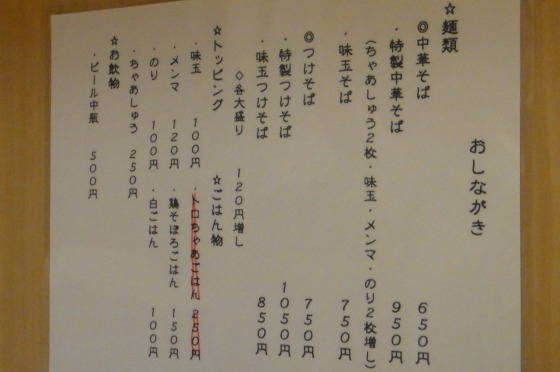 おしながき
☆麺類
◎中華そば 650円
・特製中華そば 950円
(ちゃあしゅう2枚・味玉・メンマ・のり2枚増し)
・味玉そば 750円
◎つけそば 750円
・特製つけそば 1050円
・味玉つけそば 850円
◇各大盛り 120円増し
☆トッピング
・味玉 100円
・メンマ 120円
・のり 100円
・ちゃあしゅう 250円
☆ごはん物
・トロちゃあごはん 250円
・鶏そぼろごはん 150円
・白ごはん 100円
☆お飲物
・ビール中瓶 500円